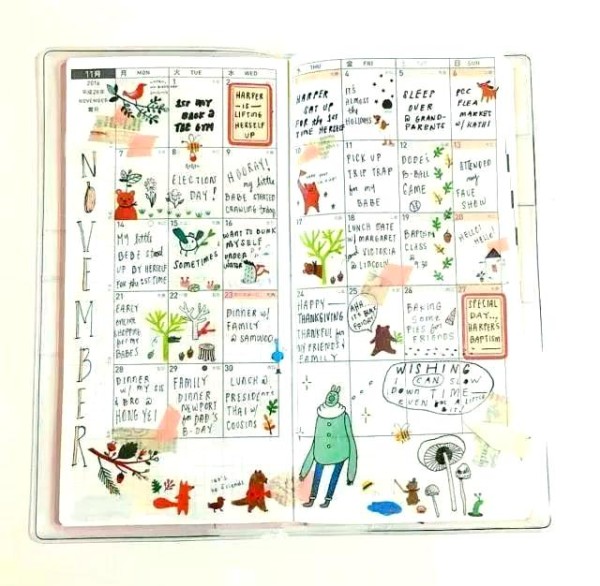 11月
月 MON
火 TUE
水 WED
THU
金 FRI
SUN
2016
NOVEMBER
1
2
1ST DAY
BACK @
THE GYM
HARPER
IS
LIFTING
HERSELF
UP
HARPER
SAT UP
FOR the 1ST
TIME HERSELF
4
IT'S
ALMOST
the
HOLIDAYS
5
SLEEP
OVER
@ GRAND-
PARENTS
6
PCC
FLEA
MARKET
W/ KATHI
7
8
ELECTION
DAY!
9
HOORAY!
my little
BABE STARTED
CRAWLING today
10
11
PICK UP
TRIP TRAP
for my
BABE
12
B-BALL
GAME
13
ATTENDED
my
FAVE
SHOW
14
MY little
BEBE stood
UP BY HERSELF
FOR the 1ST TIME
15
SOMETIMES
16
WANT TO DUNK
MYSELF
UNDER
WATER
17
18
LUNCH DATE
W/ MARGARET
and VICTORIA
@ LINCOLN
19
BAPTISM
CLASS
@
9:30
20
HELLO!
HELLO!
21
EARLY
ONLINE
SHOPPING
for my
BABES
22
23
DINNER W/
FAMILY
@ SAMWOO
24
HAPPY
THANKSGIVING
THANKFUL for
MY FRIENDS &
FAMILY
25
AHH,
IT'S BLACK
FRIDAY
26
BAKING
SOME
PIES for
FRIENDS
27
SPECIAL
DAY...
HARPER'S
BAPTISM
28
DINNER
W/ MY SIS
& BRO @
HONG YEI
29
FAMILY
DINNER
NEWPORT
for DAD'S
B-DAY
30
LUNCH @
PRESIDENT
THAI W/
COUSINS
WISHING
I CAN SLOW
DOWN TIME
EVEN for A LITTLE
BIT!
NOVEMBER
let's
be friends